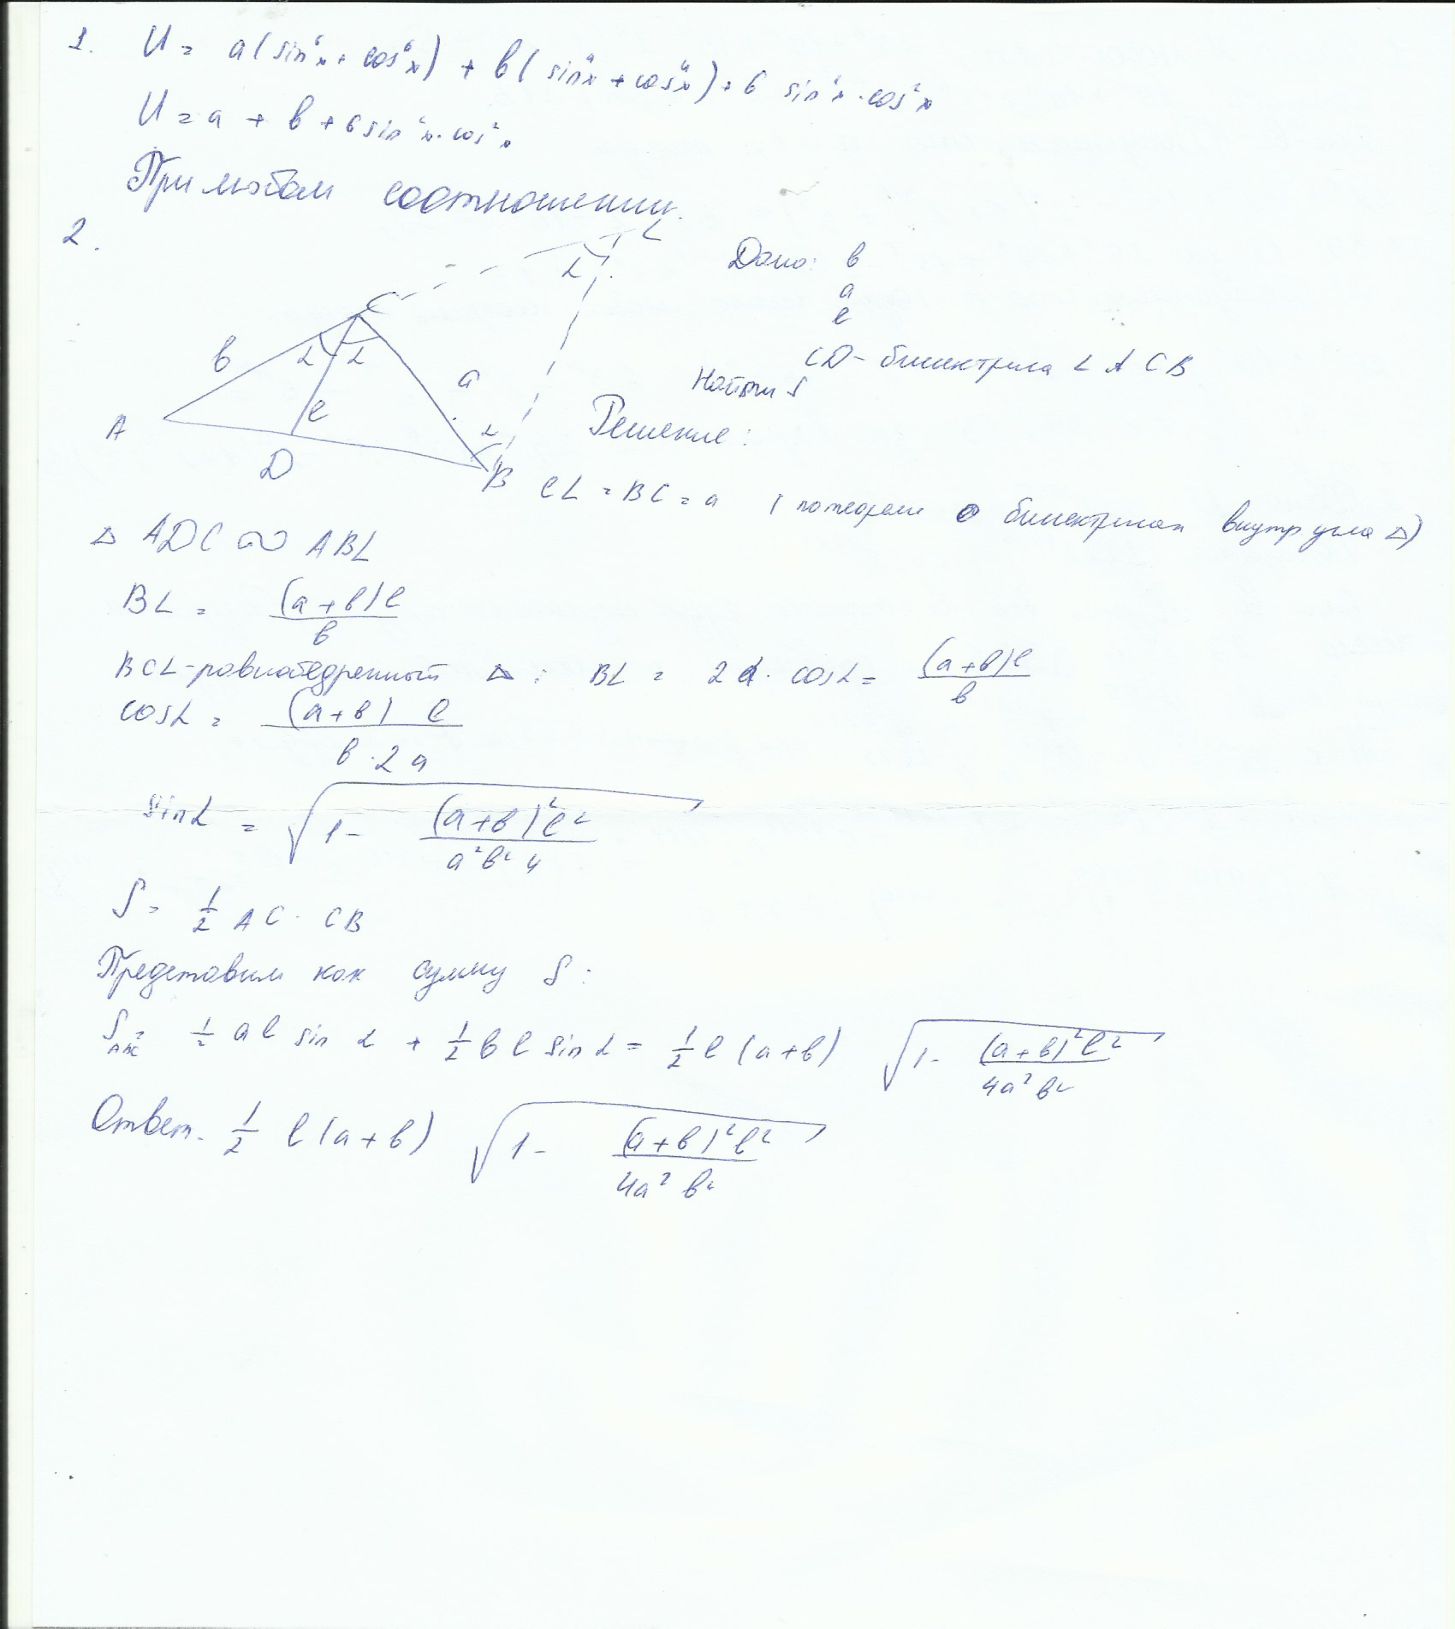 1. U = a(sin⁶x + cos⁶x) + b(sin⁴x + cos⁴x) + 6 sin²x · cos²x
U = a + b + 6 sin²x · cos²x
При любом соотношении.
2.
L
α
C
Дано: b
a
l
b
α α
a
CD - биссектриса ∠ACB
Найти S
A
l
α
Решение:
D
B
CL = BC = a (по теореме о биссектрисах внутр угла △)
△ ADC ∾ ABL
BL = (a+b)l / b
BCL - равнобедренный △: BL = 2a · cosα = (a+b)l / b
cosα = (a+b) l / b·2a
sinα = √(1 - (a+b)²l² / a²b²4)
S = 1/2 AC · CB
Представим как сумму S:
S ABC = 1/2 al sin α + 1/2 bl sin α = 1/2 l (a+b) √(1 - (a+b)²l² / 4a²b²)
Ответ. 1/2 l(a+b) √(1 - (a+b)²l² / 4a²b²)